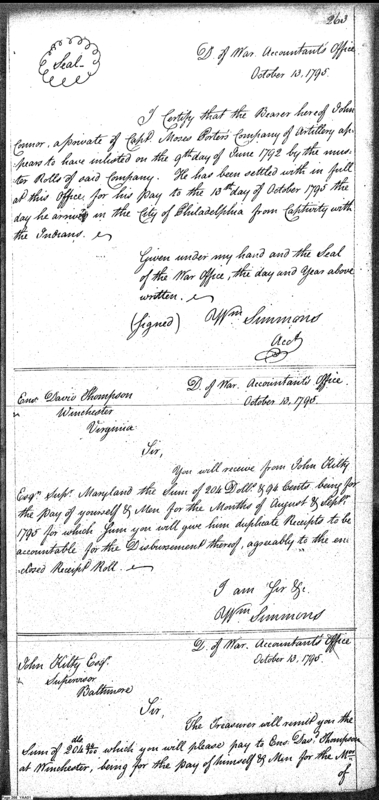 263
Seal
D. of War. Accountants Office
October 13, 1795.
I Certify that the Bearer hereof John
Connor, a private of Capt. Moses Porters Company of Artillery ap-
pears to have inlisted on the 9th day of June 1792 by the mus-
ter Rolls of said Company. He has been settled with in full
at this Office, for his pay to the 13th day of October 1795 the
day he arrived in the City of Philadelphia from Captivity with
the Indians.
Given under my hand and the Seal
of the War Office, the day and Year above
written.
(Signed) Wm Simmons
Acct
D. of War. Accountant's Office.
October 13, 1795.
Ens. David Thompson
Winchester
Virginia
Sir,
You will receive from John Kilty
Esqr. Supr. Maryland the Sum of 204 Dolls. & 94 Cents being for
the pay of yourself & Men for the Months of August & Septr.
1795 for which Sum you will give him duplicate Receipts to be
accountable for the Disbursement thereof, agreeably to the en-
closed Receipt Roll.
I am Sir &c.
Wm Simmons
D. of War. Accountants Office
October 13, 1795.
John Kilty Esqr.
Supervisor
Baltimore
Sir,
The Treasurer will remit you the
Sum of 204 which you will please pay to Ens. Davd. Thompson
at Winchester, being for the pay of himself & Men for the Mos
of